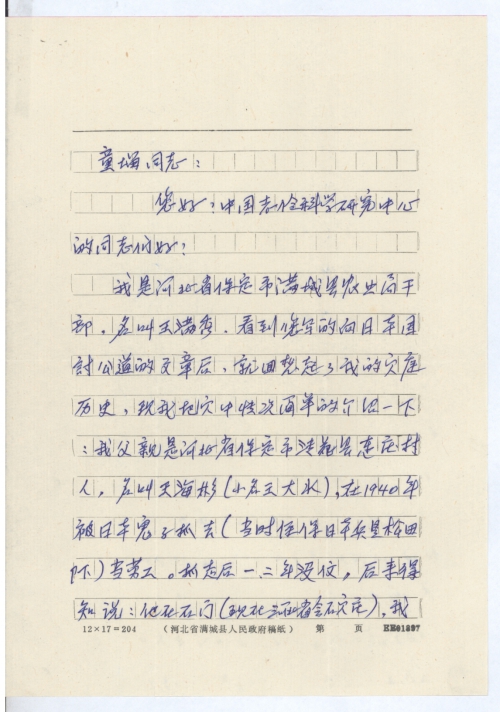 童增同志:
您好?中国老龄科学研究中心
的同志们好?
我是河北省保定市满城县农业局干
部,名叫王满秀,看到您写的向日本国
讨公道的文章后,就回想起了我的家庭
历史,现我把家中情况简单的介绍一下
:我父亲是河北省保定市清苑县连庄村
人,名叫王海彬(小名王大水),在1940年
被日本鬼子抓去(当时住保日本兵是松田
下)当劳工。抓走后一二年没信,后来得
知说:他在石门(现在河北省会石家庄),我
12×17=204 (河北省满城县人民政府稿纸) 第 页 EE01897